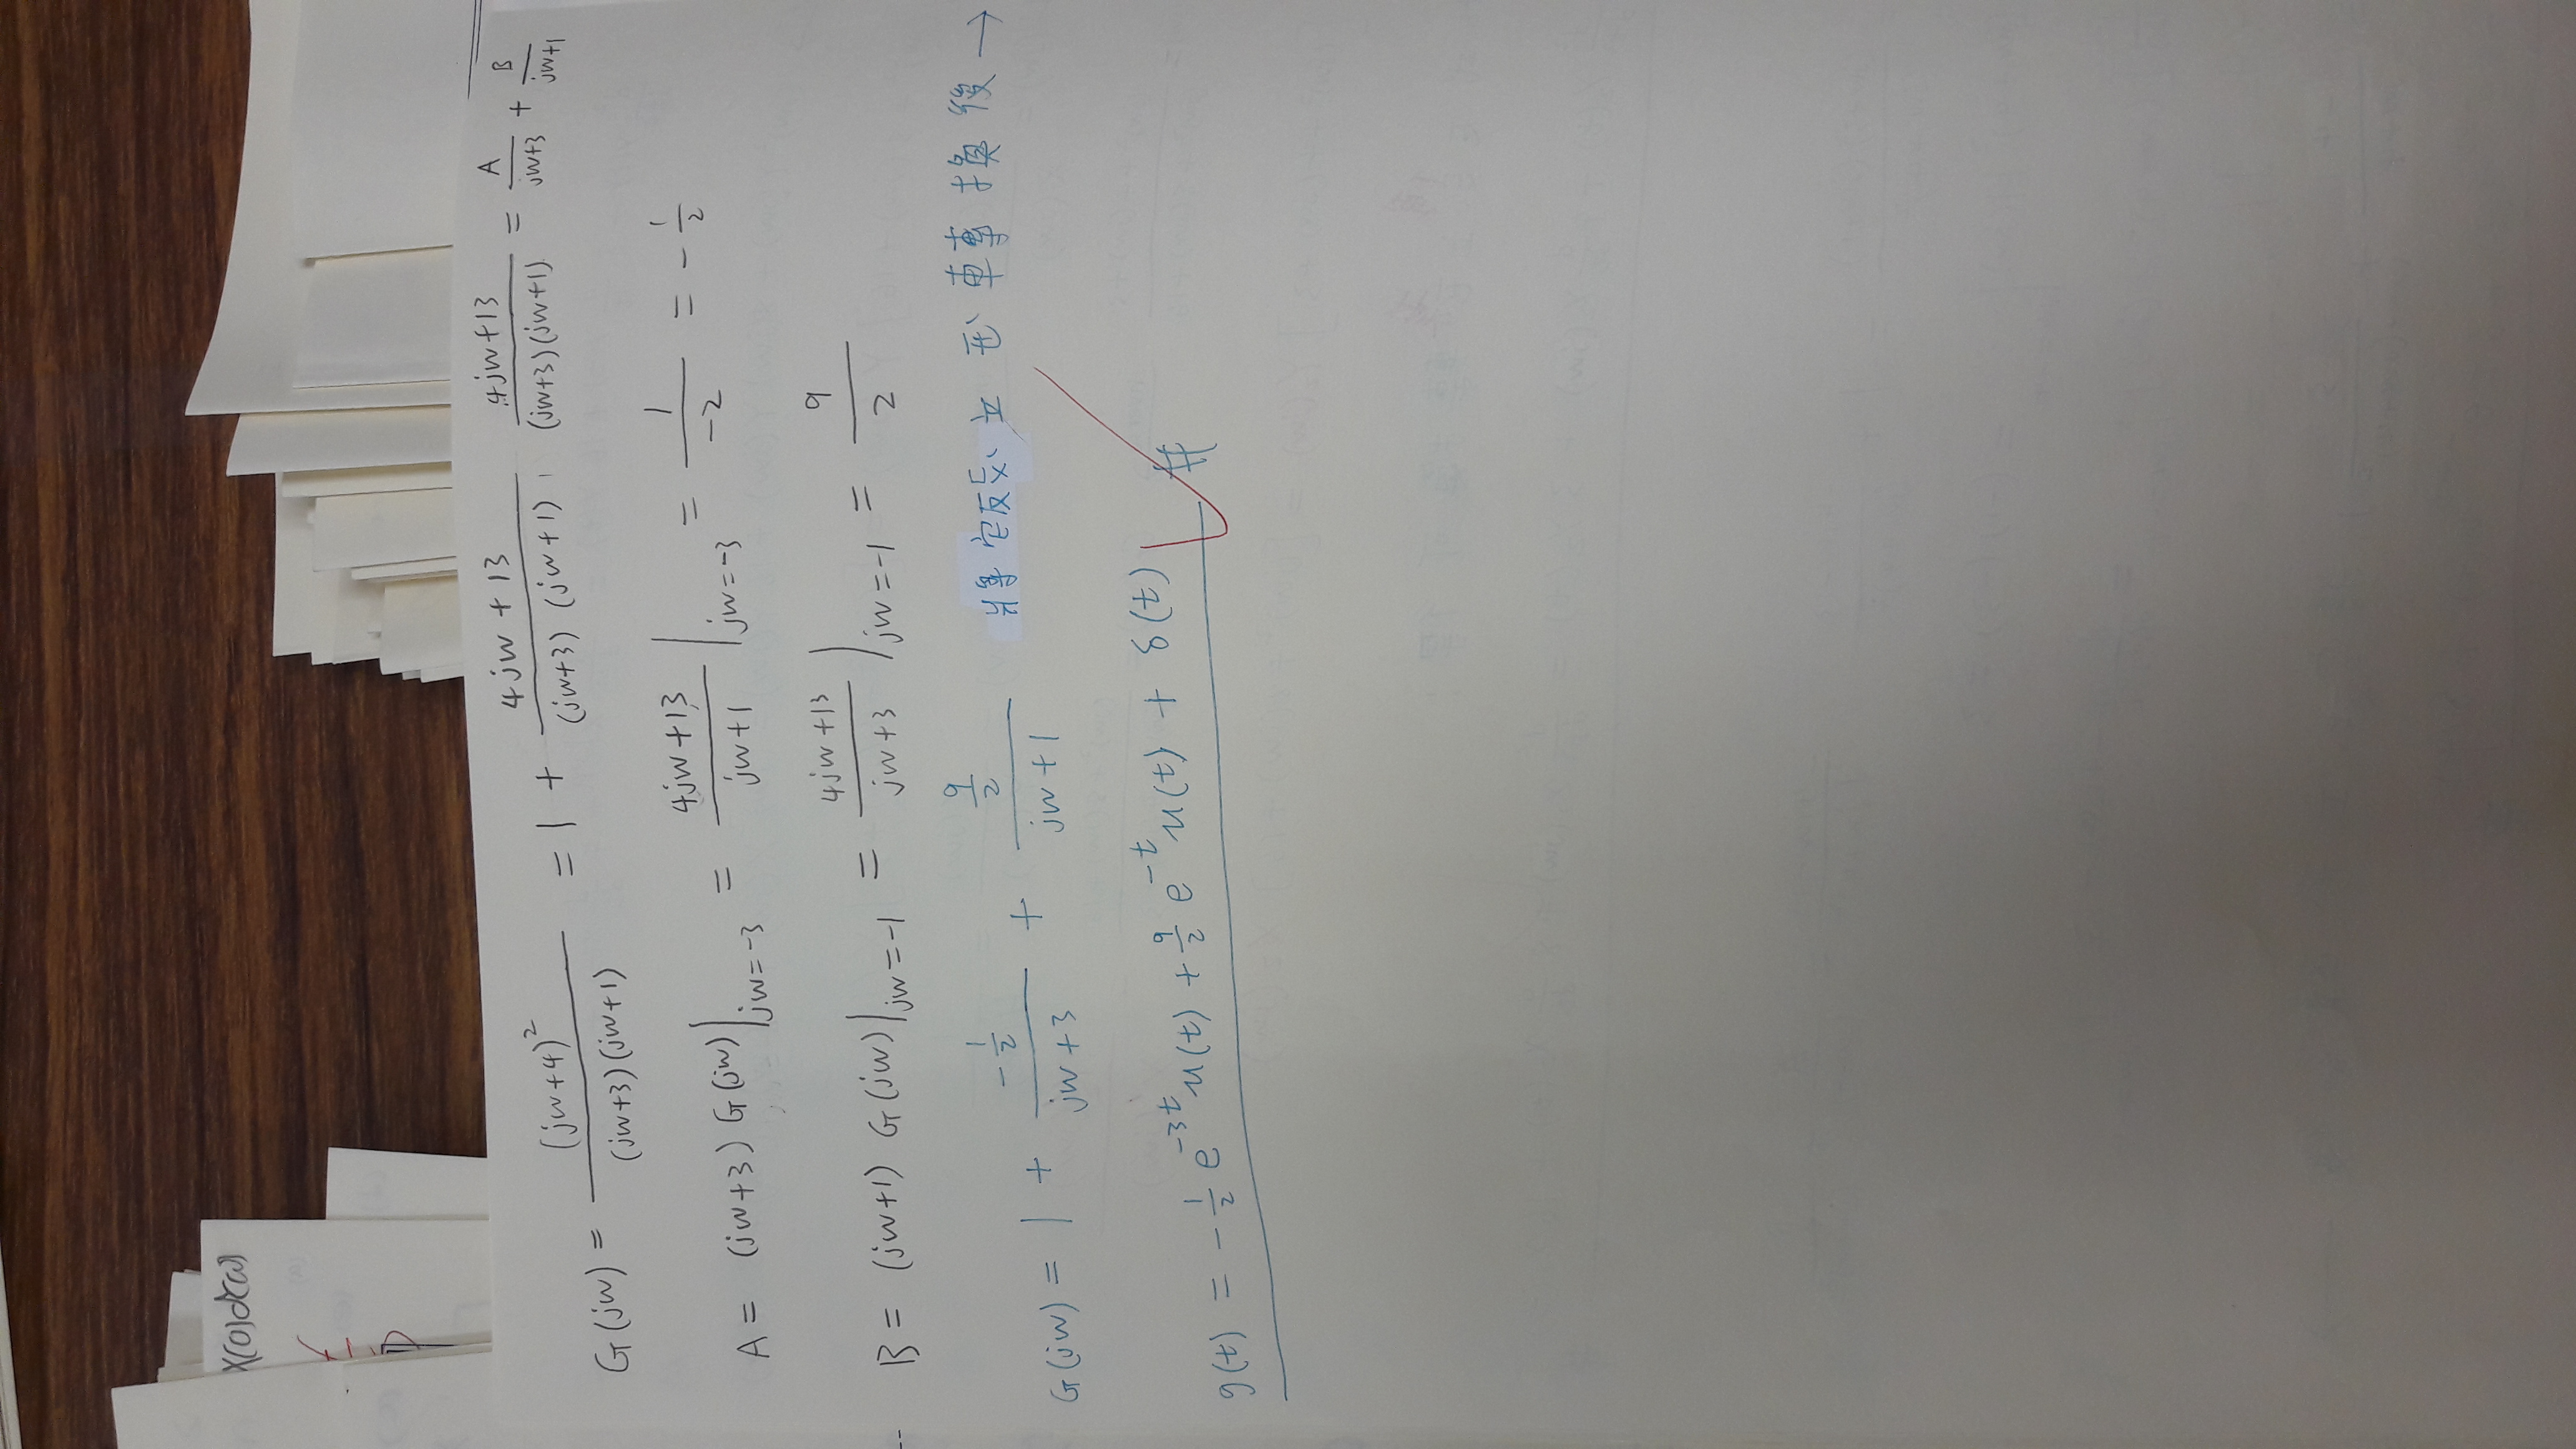 X(0)d(ω)
G(jw) = (jw+4)² / (jw+3)(jw+1) = 1 + 4jw+13 / (jw+3)(jw+1), 4jw+13 / (jw+3)(jw+1) = A / jw+3 + B / jw+1
A = (jw+3) G(jw)|jw=-3 = 4jw+13 / jw+1 |jw=-3 = 1 / -2 = -1/2
B = (jw+1) G(jw)|jw=-1 = 4jw+13 / jw+3 |jw=-1 = 9/2
G(jw) = 1 + -1/2 / jw+3 + 9/2 / jw+1 將它反 立 轉換後 →
g(t) = -1/2 e^-3t u(t) + 9/2 e^-t u(t) + δ(t) #